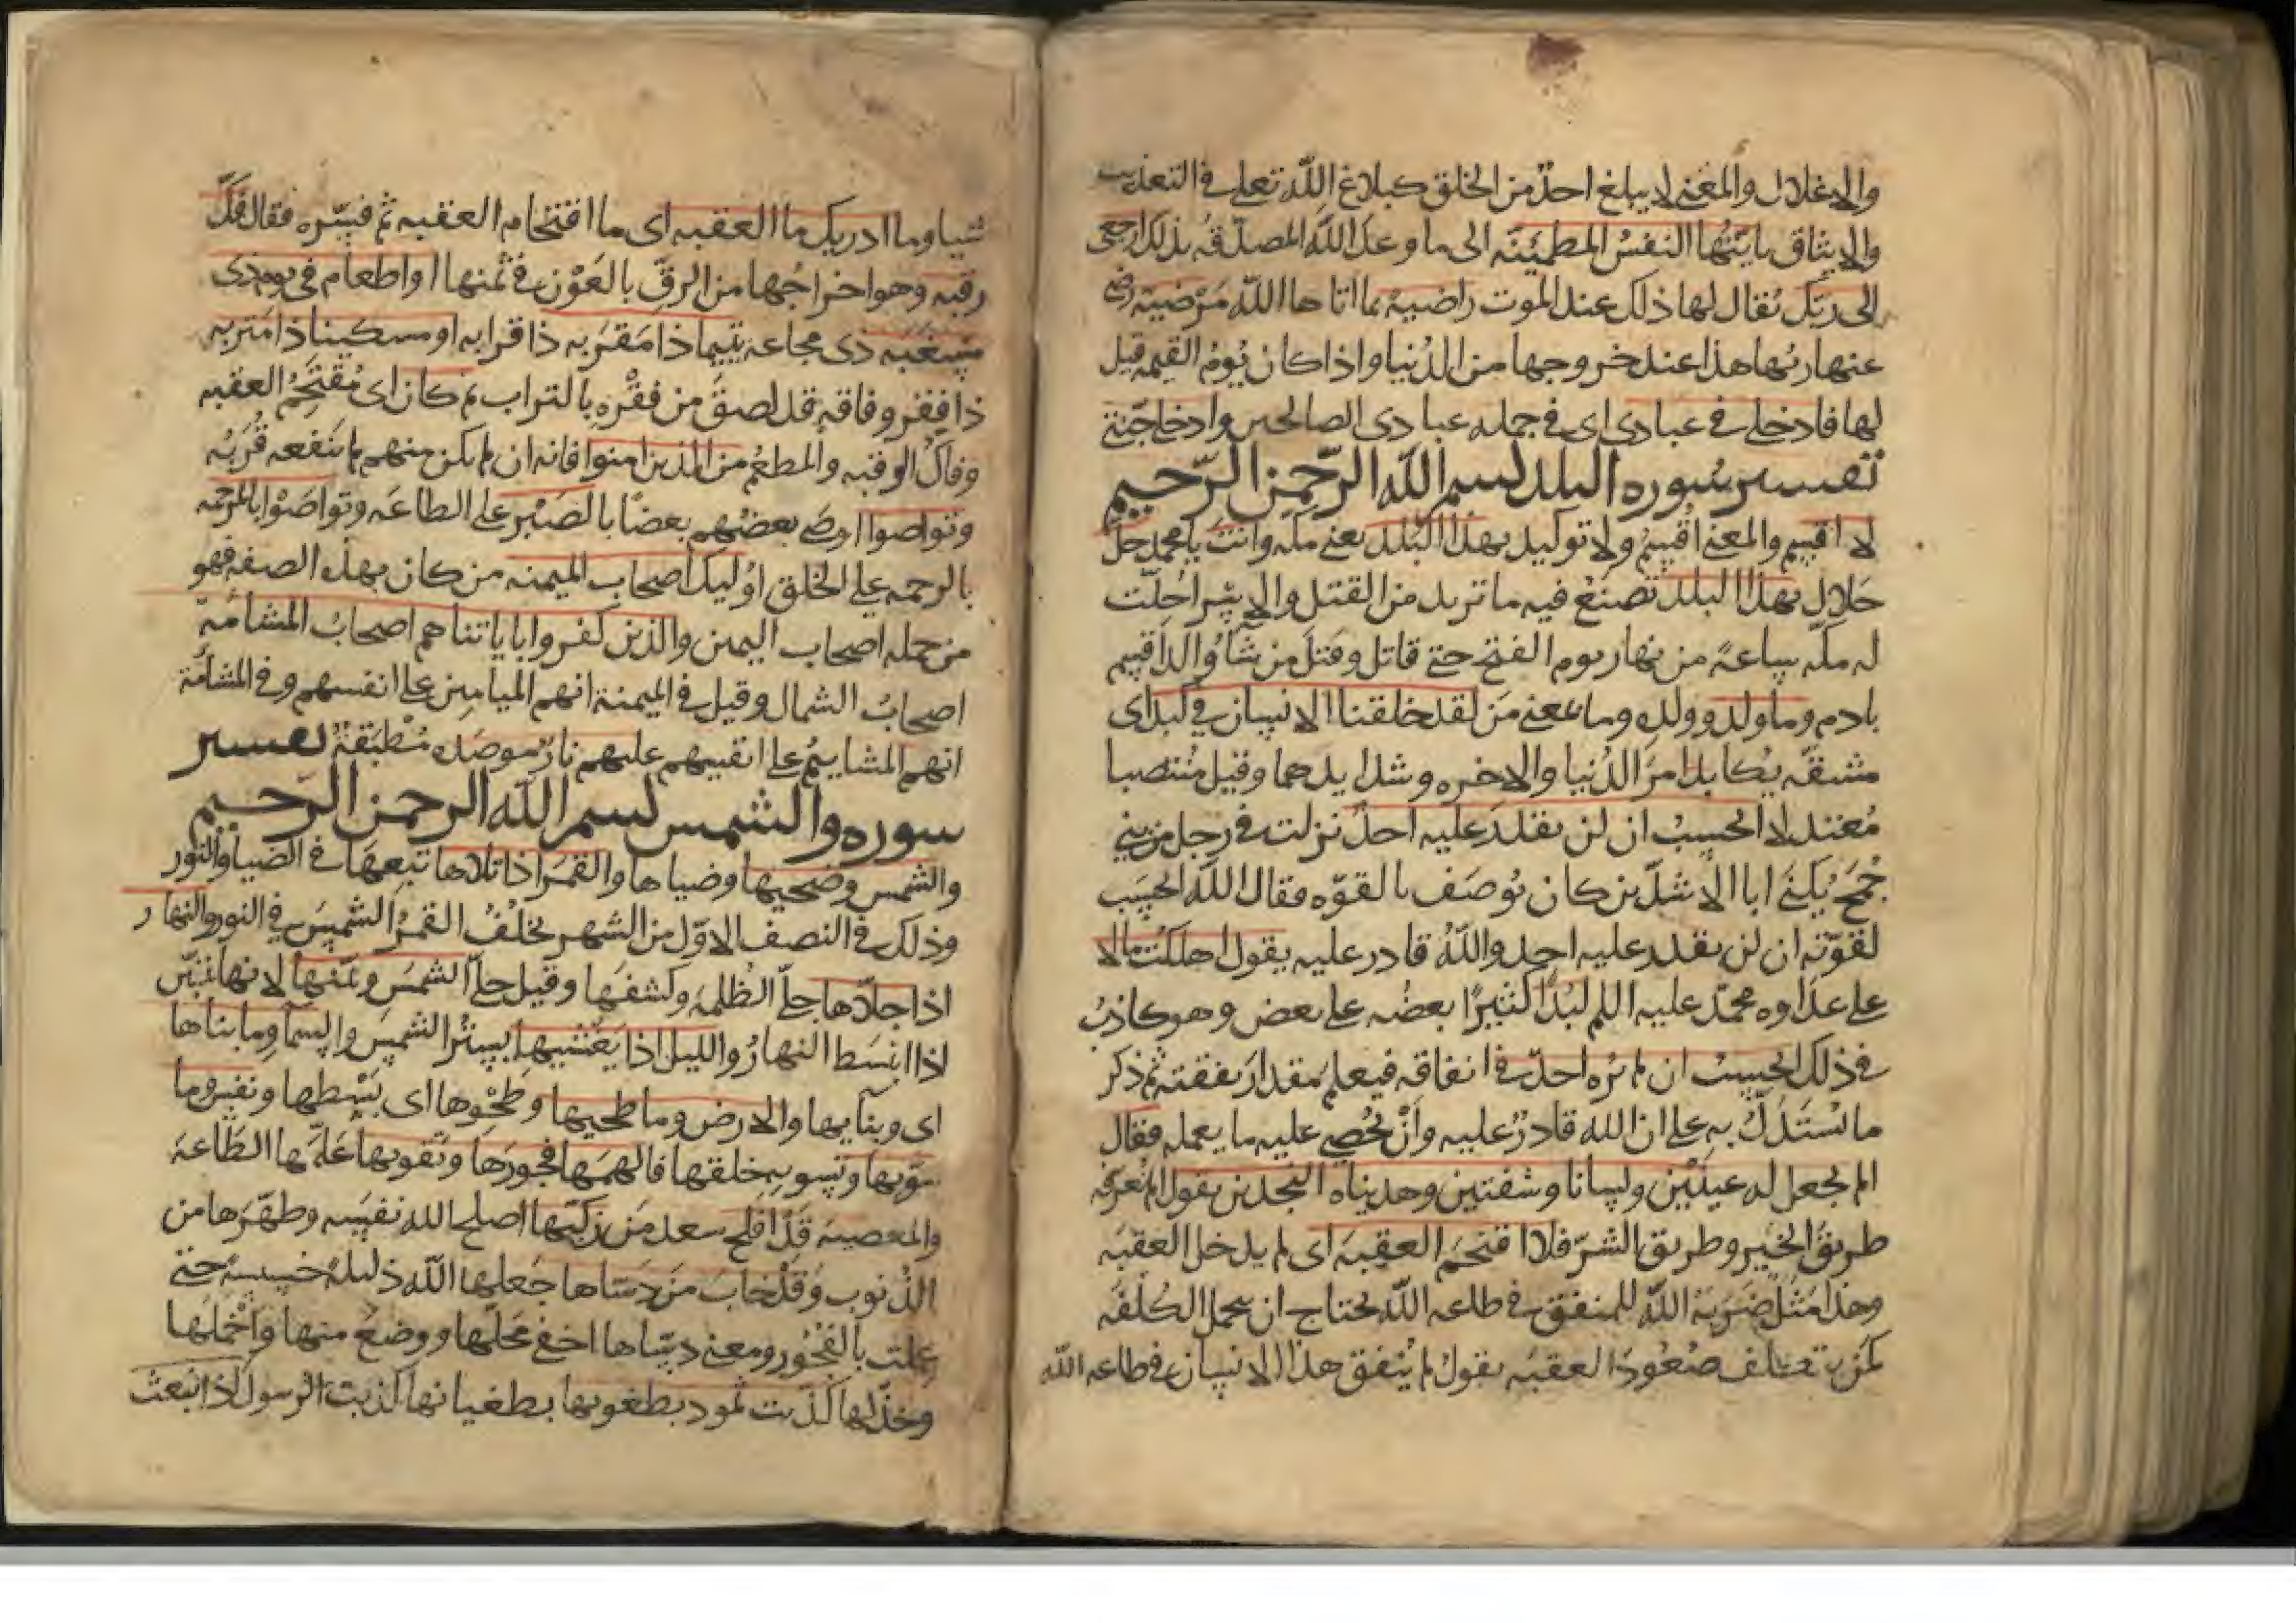 والاغلال والمعنى لا يبلغ احدٌ من الخلق كبلاغ اللّه تعلى في التعذيب
والايثاق يايّتُها النفسُ المطمَئِنّه الى ما وعدَ اللّه المصدّقهُ بذلك ارجعى
الى ربّكِ يُقال لها ذلك عند الموت راضيةً بما اتاها اللّه مَرْضيّةً رضى
عنها ربُّها هذا عند خروجها من الدُّنيا واذا كان يَوْمُ القيمه قيل
لها فادخلى في عبادى اى في جمله عبادى الصالحين وادخلى جنّتى
تفسير سُوره البلد بسم اللّه الرّحمن الرّحيم
لا اقسم والمعنى اُقْسِمُ ولا توكيد بهذا البَلَد يعنى مكه وانتَ يا محمد حلٌّ
حَلال بهذا البلد تصنَعُ فيه ما تريد من القتل والاسْر اُحِلّت
له مكّه ساعةً من نهار يوم الفتح حتى قاتل وقتل من شآ ووالدٍ اقسم
بادم وما ولد وولدِه وما بمعنى مَن لقد خلقنا الانسان في كبد اى
مشقّه يُكابد امرَ الدُّنيا والاخره وشدايدهما وقيل مُنتصبا
مُعتدلا ايحسِبُ ان لن يقدرَ عليه احدٌ نزلت في رجل من بنى
جُمَح يُكنى ابا الاشدّين كان يُوصَف بالقوّه فقال اللّه ايحسِب
لقوّته ان لن يقدر عليه احد واللّهُ قادر عليه يقول اهلكْتُ مالا
على عداوه محمّد عليه السلم لُبَدًا كثيرًا بعضُه على بعض وهو كاذبٌ
في ذلك ايحسِبُ ان لم يَرَه احدٌ في انفاقه فيعلم مقدارَ نفقته ثم ذكر
ما يُستَدَلُّ به على ان اللّه قادرٌ عليه وأنْ يُحْصى عليه ما يعمله فقال
الم نجعل له عينَيْن ولسانا وشفتين وهديناه النّجدين يقول الم نُعرّفه
طريقَ الخَيْر وطريق الشرّ فلا اقتحمَ العقبَه اى لم يدخل العقَبَه
وهذا مَثَلٌ ضَرَبَهُ اللّه للمنفق في طاعه اللّه يحتاج ان يتحمل الكُلْفَه
كمن يتكلف صُعُودَ العقبَه يقول لم يُنفق هذا الانسان في طاعه اللّه
شيا وما ادريك ما العقبه اى ما اقتحام العقبه ثم فسّره فقال فَكُّ
رقبه وهو اخراجُها من الرقّ بالعَوْن في ثمنها او اطعام في يوم ذى
مسغَبَه ذى مجاعه يتيما ذا مَقرَبه ذا قرابه او مسكينا ذا مَتربه
ذا فقر وفاقه قد لصق من فقْره بالتراب ثم كان اى مُقتَحِمُ العقبه
وفاكُّ الرقبه والمطعمُ من الذين امنوا فانه ان لم يكن منهم لم ينفعه قُربُه
وتواصوا اوصى بعضُهم بعضًا بالصَبْر على الطاعَه وتواصَوْا بالمرحمه
بالرحمه على الخلق اوُليك اصحاب الميمنه من كان بهذه الصفه فهو
من جمله اصحاب اليمين والذين كفروا باياتنا هم اصحابُ المشأمة
اصحابُ الشمال وقيل في الميمنة انهم الميامين على انفسهم وفي المشأمة
انهم المشاييم على انفسهم عليهم نارٌ موصَده مُطْبَقةٌ تفسير
سوره والشمس بسم اللّه الرحمن الرّحيم
والشمس وضحيها وضياها والقمَر اذا تلاها تبعهَا في الضيا والنور
وذلك في النصف الاوّل من الشهر يخلُفُ القمرُ الشمسَ في النور والنهار
اذا جلّاها جلّى الظلمه وكشفها وقيل جلّى الشمسَ وبيّنها لانها تتبيّن
اذا انبسَط النهارُ والليل اذا يَغشيها يسترُ الشمسَ والسمآ وما بناها
اى وبنآيها والارض وما طحيها وطَحْوها اى بَسْطِها ونفس وما
سوّيها وتسويه خلقها فالهمَها فجورَها وتقويها عَلّمَها الطّاعهَ
والمعصيه قَدْ افلح سعد مَن زكّيها اصلح اللّه نفسَه وطهّرَها من
الذنوب وَقدْ خابَ مَن دسّاها جَعلها اللّه ذليلةً خسيسةً حتى
عملت بالفُجُور ومعنى دسّاها اخفى مَحلّها ووضعُ منها وأخْمَلَها
وخذَلها كَذّبت ثمود بطغويها بطغيانها كذبت الرسول اذ انبعث